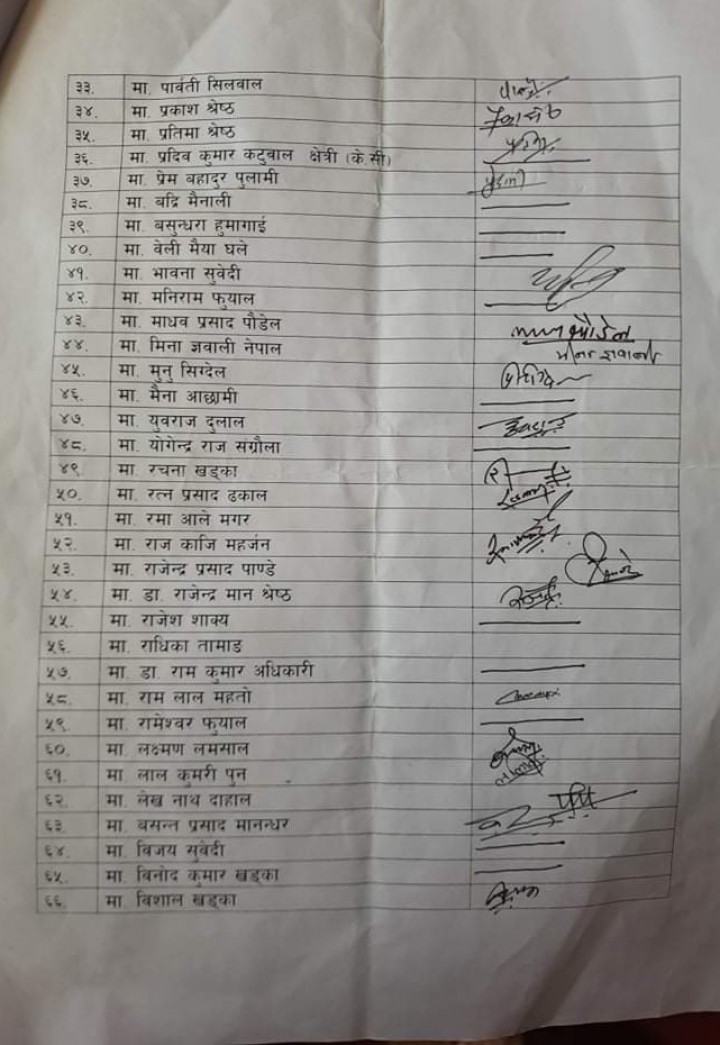 ३३. मा. पार्वती सिलवाल
३४. मा. प्रकाश श्रेष्ठ
३५. मा. प्रतिमा श्रेष्ठ
३६. मा. प्रदिव कुमार कटुवाल क्षेत्री (के.सी)
३७. मा. प्रेम बहादुर पुलामी
३८. मा. बद्रि मैनाली
३९. मा. बसुन्धरा हुमागाई
४०. मा. वेली मैया घले
४१. मा. भावना सुवेदी
४२. मा. मनिराम फुयाल
४३. मा. माधव प्रसाद पौडेल
पौडेल
४४. मा. मिना ज्ञवाली नेपाल
४५. मा. मुनु सिग्देल
४६. मा. मैना आछामी
४७. मा. युवराज दुलाल
४८. मा. योगेन्द्र राज संग्रौला
४९. मा. रचना खड्का
५०. मा. रत्न प्रसाद ढकाल
५१. मा. रमा आले मगर
५२. मा. राज काजि महर्जन
५३. मा. राजेन्द्र प्रसाद पाण्डे
५४. मा. डा. राजेन्द्र मान श्रेष्ठ
५५. मा. राजेश शाक्य
५६. मा. राधिका तामाङ
५७. मा. डा. राम कुमार अधिकारी
५८. मा. राम लाल महतो
५९. मा. रामेश्वर फुयाल
६०. मा. लक्ष्मण लमसाल
६१. मा. लाल कुमरी पुन
६२. मा. लेख नाथ दाहाल
६३. मा. बसन्त प्रसाद मानन्धर
६४. मा. विजय सुवेदी
६५. मा. विनोद कुमार खड्का
६६. मा. विशाल खड्का